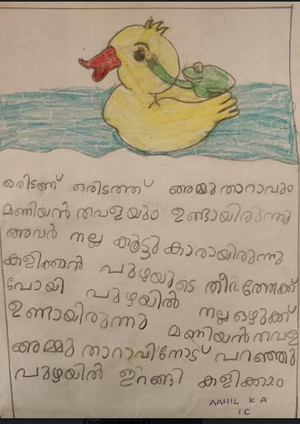 ഒരിടത്ത് ഒരിടത്ത് അമ്മുതാറാവും
മണിയൻ തവളയും ഉണ്ടായിരുന്നു
അവർ നല്ല കൂട്ടുകാരായിരുന്നു
കളിക്കാൻ പുഴയുടെ തീരത്തേക്ക്
പോയി പുഴയിൽ നല്ല ഒഴുക്ക്
ഉണ്ടായിരുന്നു മണിയൻ തവള
അമ്മു താറാവിനോട് പറഞ്ഞു
പുഴയിൽ ഇറങ്ങി കളിക്കാം
AAHIL K A
1C